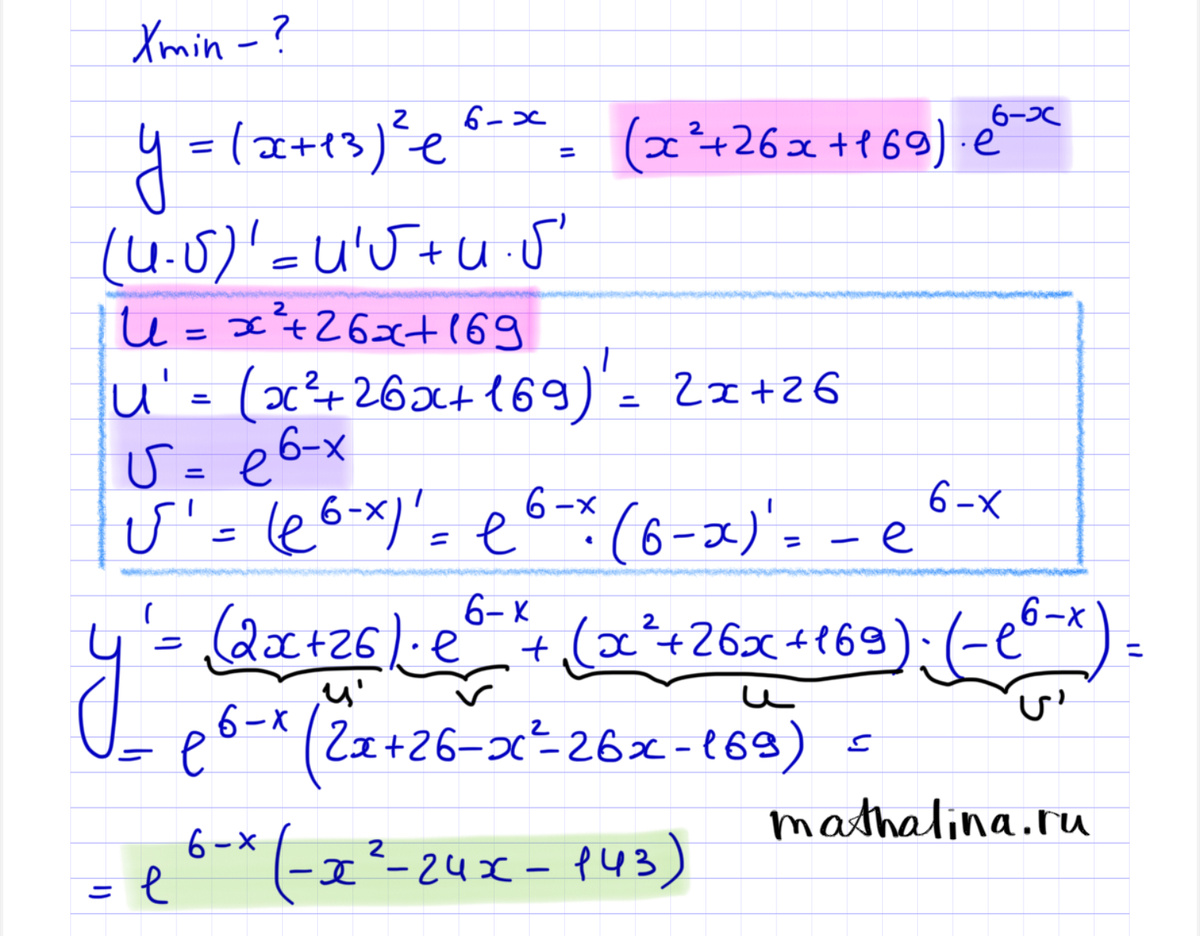 Xmin – ?
y = (x+13)² e^(6–x) = (x²+26x+169) · e^(6–x)
(u·v)' = u'v + u·v'
u = x²+26x+169
u' = (x²+26x+169)' = 2x+26
v = e^(6–x)
v' = (e^(6–x))' = e^(6–x) · (6–x)' = – e^(6–x)
y' = (2x+26) · e^(6–x) + (x²+26x+169) · (–e^(6–x)) =
u' v u v'
= e^(6–x) (2x+26–x²–26x–169) =
mathalina.ru
= e^(6–x) (–x²–24x–143)